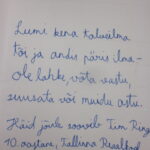 Lumi kena talveilma
tõi ja andis päris ilma -
Ole lahke, võta vastu,
suusata või muidu astu.
Häid jõule soovib Tim Ring
10. aastane, Tallinna Reaalkool